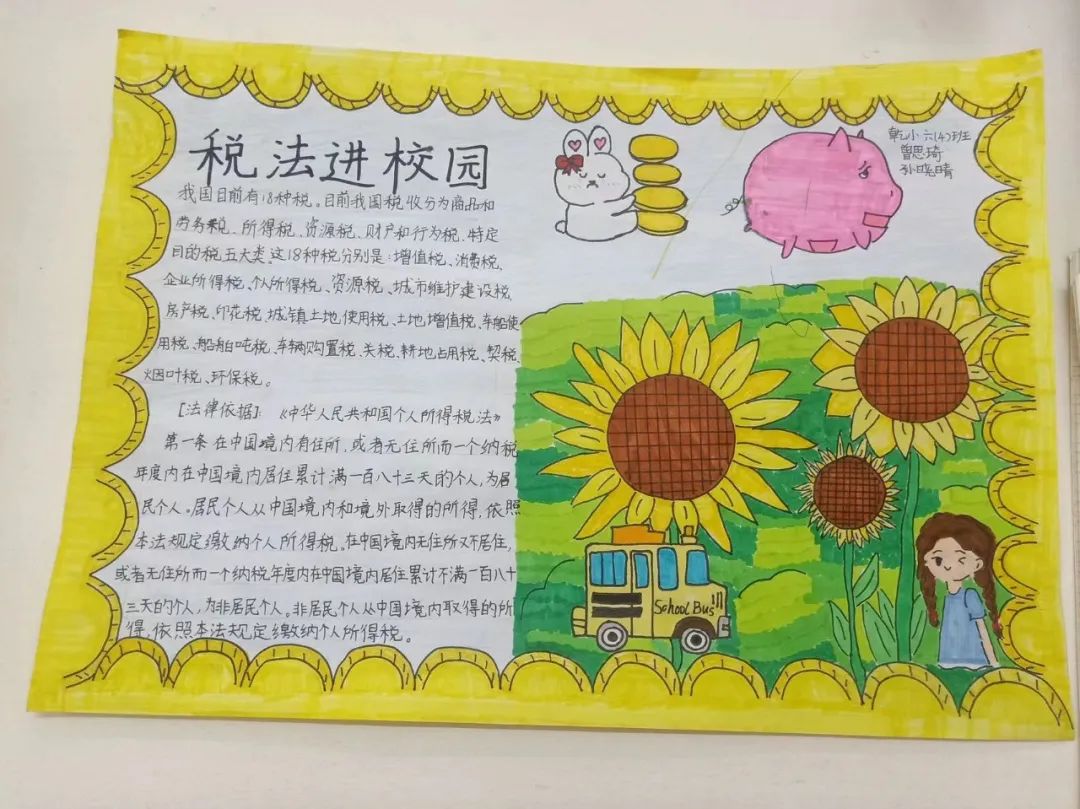 税法进校园
乾小六(4)班
曾思琦
孙晓晴
我国目前有18种税。目前我国税收分为商品和
劳务税、所得税、资源税、财产和行为税、特定
目的税五大类。这18种税分别是:增值税、消费税、
企业所得税、个人所得税、资源税、城市维护建设税、
房产税、印花税、城镇土地使用税、土地增值税、车船使
用税、船舶吨税、车辆购置税、关税、耕地占用税、契税、
烟叶税、环保税。
[法律依据]:《中华人民共和国个人所得税法》
第一条 在中国境内有住所,或者无住所而一个纳税
年度内在中国境内居住累计满一百八十三天的个人,为居
民个人。居民个人从中国境内和境外取得的所得,依照
本法规定缴纳个人所得税。在中国境内无住所又不居住,
或者无住所而一个纳税年度内在中国境内居住累计不满一百八十
三天的个人,为非居民个人。非居民个人从中国境内取得的所
得,依照本法规定缴纳个人所得税。
School Bus